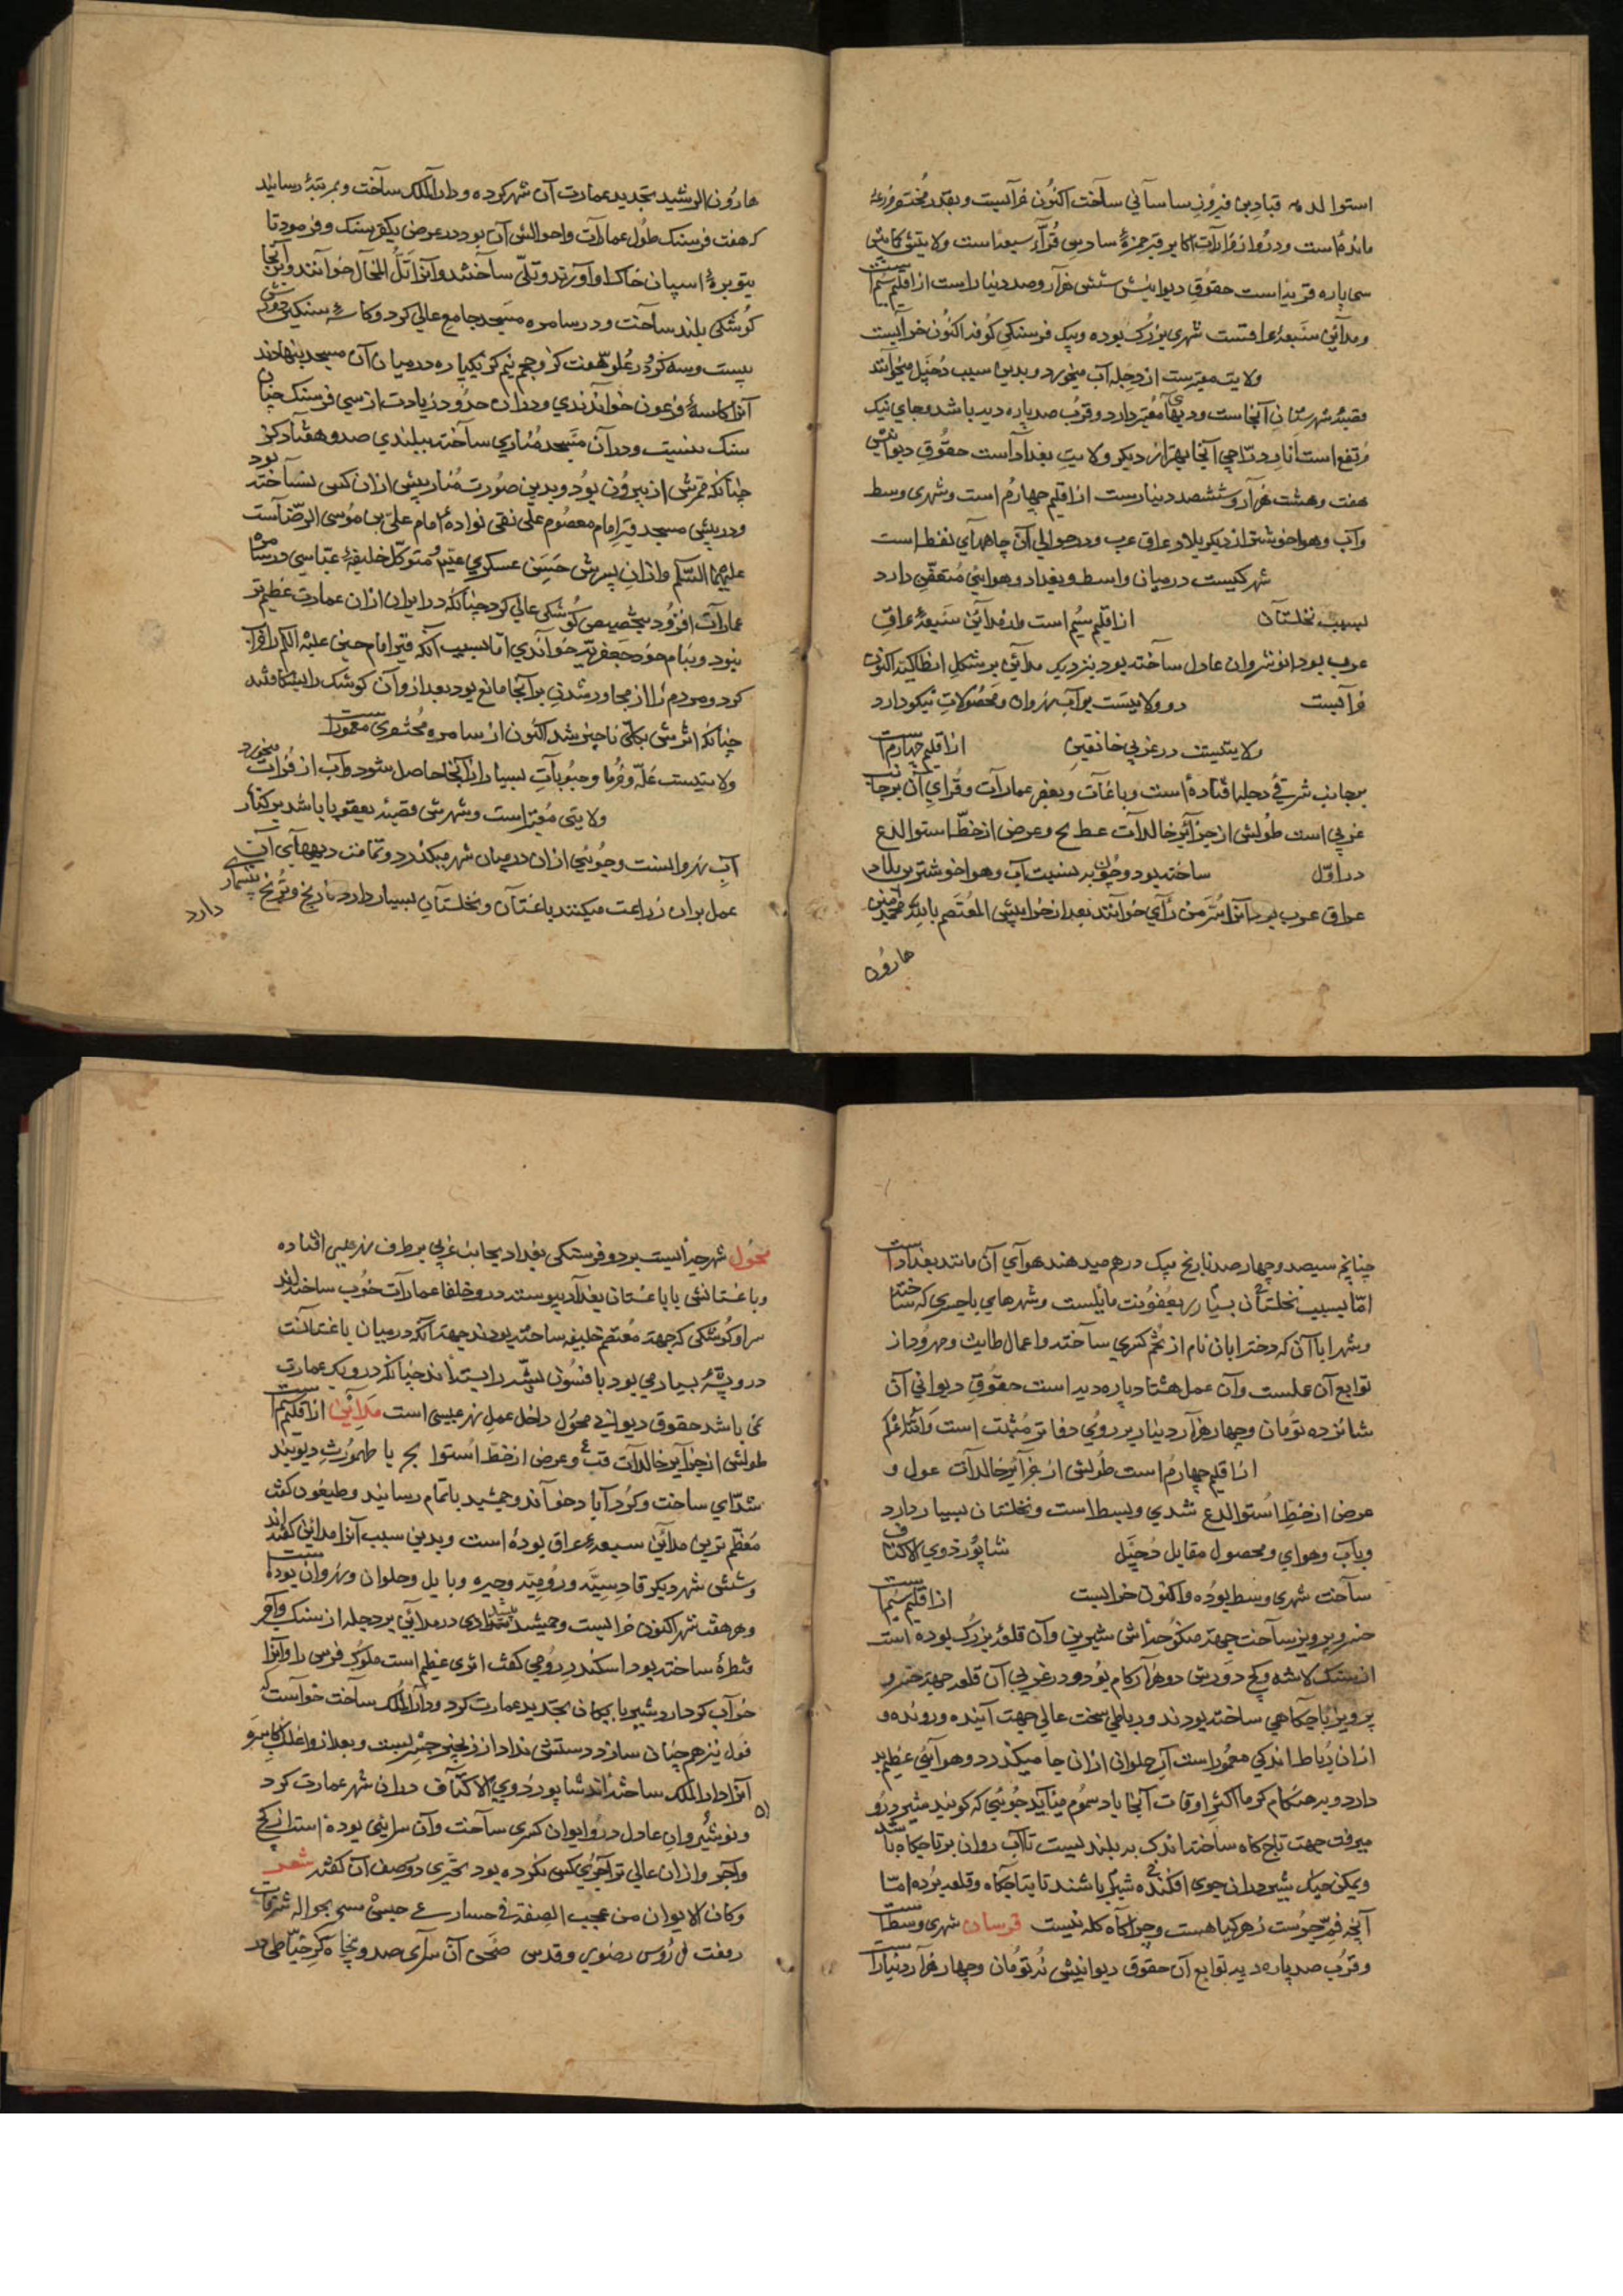 استوا لد مه قبادبن فیروز ساسانی ساخت اکنون خرابست و بقدر مختصر مزرعهٔ
مانده است و درو از مزارات اکابر قبر حمزهٔ سادس قرّاء سبعه است ولایتی
سی پاره قریه است حقوق دیوانیش شش هزار و صد دینار است از اقلیم سیم است
و مداین سبعهٔ عراقست شهری بزرگ بوده و بیک فرسنکی کوفه اکنون خرابست
ولایت معتبرست از دجله آب میخورد و بدین سبب دُجَیل میخوانند
قصبهٔ شهرستان آنجاست و دیهای معتبر دارد و قرب صد پاره دیه باشد و جای نیک
مرتفع است انار درّاجی آنجا بهتر از دیکر ولایت بغداد است حقوق دیوانیش
هفت و هشت هزار و ششصد دینارست از اقلیم چهارم است و شهری وسط
و آب و هوا خوشتر از دیکر بلاد عراق عرب و در حوالی آن چاههای نفط است
شهرکیست در میان واسط و بغداد و هوایی متعفّن دارد
بسبب نخلستان از اقلیم سیُم است و از مداین سبعهٔ عراق
عرب بود انوشروان عادل ساخته بود بنزدیک مداین بر شکل انطاکیه اکنون
خرابست دو ولایتست بر آب نهروان و محصولات نیکو دارد
ولایتیست در غربی خانقین از اقلیم چهارم است
بر جانب شرقی دجله افتاده است و باغات و بعضی عمارات و قرای آن بر جانب
غربی است طولش از جزایر خالدات عط لح و عرض از خطّ استوا لدع
در اوّل ساخته بود و چون بر نسبت آب و هوا خوشترین بلاد
عراق عرب بود آنرا سُرّ من رای خوانند بعد از خرابیش المعتصم بالله محمد بن
هارون
هارون الرشید تجدید عمارت آن شهر کرده و دار الملک ساخت و بمرتبهٔ رسانید
که هفت فرسنک طول عمارات و حوالش آن بود در عرض یکفرسنک و فرمود تا
بتوبرهٔ اسپان خاک آوردند و تلّی ساختند و آنرا تَلّ المخال خوانند و بر آنجا
کوشکی بلند ساخت و در سامره مسجد جامع عالی کرد و کاسهٔ سنکین دورش
بیست و سه کز در علو هفت کز و حجم نیم کز یکپاره در میان آن مسجد بنهادند
آنرا کاسهٔ فرعون خواندندی و در آن حدود زیادت از سی فرسنک چنان
سنک نیست و در آن مسجد مناری ساخته ببلندی صد و هفتاد کز
چنانکه ممرش از بیرون بود و بدین صورت منار پیش از آن کسی نساخته بود
و در پیش مسجد قبر امام معصوم علی نقی نوادهٔ امام علیّ بن موسی الرضاست
علیهما السّلم و از آنِ پسرش حسن عسکری متوکّل خلیفهٔ عبّاسی در سامره
عمارات افزود بتخصیص کوشکی عالی کرد چنانکه در ایران از آن عمارت عظیم تر
نبود و بنام خود جعفریّه خواندی امّا بسبب آنکه قبر امام حسین علیه السلم را خراب
کرد و مردم را از مجاور شدن بر آنجا مانع بود بعد از و آن کوشک را بشکافتند
چنانکه اثرش بکلّی ناچیز شد اکنون از سامره مختصری معمورست
ولایتیست غلّه و خرما و حبوبات بسیار از آنجا حاصل شود و آب از فرات میخورد
ولایتی معتبر است و شهرش قصبهٔ یعقوبا باشد بر کنار
آب نهروانست و جویی از آن در میان شهر میکذرد و تمامت دیههای آن
عمل بر آن زراعت میکنند باغستان و نخلستان بسیار دارد نارنج و ترنج بیشمار
دارد
چنانچه سیصد و چهار صد نارنج بیک درهم میدهند هوای آن مانند بغداد است
امّا بسبب نخلستان بسیار بعفونت مایلست و شهرهای که ساخته
و شهرابان آن که دختر ابان نام از تخم کسری ساخته و اعمال طابث و مهرود از
توابع آن عملست و آن عمل هشتاد پاره دیه است حقوق دیوانی آن
شانزده تومان و چهار هزار دینار بر روی دفاتر مثبت است والله اعلم
از اقلیم چهارم است طولش از جزایر خالدات عول و
عرض از خطّ استوا لدع شهری وسط است و نخلستان بسیار دارد
و بآب و هوای و محصول مقابل دُجَیل شاپور ذوی الاکتاف
ساخت شهری وسط بوده و اکنون خرابست از اقلیم سیم است
خسرو پرویز ساخت جهة منکوحه اش شیرین و آن قلعهٔ بزرک بوده است
از سنک لاشه و کچ دورش دو هزار کام بود و در غربی آن قلعه جهة خسرو
پرویز تا چکاهی ساخته بودند و رباطی سخت عالی جهت آینده و رونده و
از آن رباط اندکی معمور است آب حلوان از آن جا میکذرد و هوایی عظیم بد
دارد و بر هنکام کرما اکثر اوقات آنجا باد سموم میآید جویی که کویند شیر در و
میرفت جهت تاج کاه ساخته اندک بر بلندیست تا آب روان بر تاجکاه باشد
و یمکن حیک شیر در آن جوی افکنده باشند تا بتاجکاه و قلعه برده امّا
آنچه جوست زهر کیاهست و چراکاه کله نیست قرسان شهری وسط است
و قرب صد پاره دیه توابع آن حقوق دیوانیش نه تومان و چهار هزار دینار است
محوّل شهرچهٔ ایست بر دو فرسنکی بغداد بجانب غربی بر طرف نهر عیسی افتاده
و باغستانش با باغستان بغداد پیوسته در و خلفا عمارات خوب ساخته اند
سرا و کوشکی که جهة معتصم خلیفه ساخته بودند جهة آنکه در میان باغستانست
در و پشهٔ بسیار می بود بافسون پشه را بسته اند چنانکه در و یک عمارت
نمی باشد حقوق دیوانی محوّل داخل عمل نهر عیسی است مداین از اقلیم سیم است
طولش از جزایر خالدات قب ع و عرض از خطّ استوا لج با طهمورث دیوبند
ساخت و کردآباد خواند و جمشید باتمام رسانید و طیسفون کفت
معظّم ترین مداین سبعهٔ عراق بوده است و بدین سبب آنرا مداین کفته اند
و شش شهر دیکر قادسیّه و رومیّه و حیره و بابل و حلوان و نهروان بوده است
و هر هفت شهر اکنون خرابست و جمشید در مداین بر دجله از سنک و آجر
قنطرهٔ ساخته بود اسکندر رومی کفت اثری عظیم است ملوک فرس را و آنرا
خراب کرد اردشیر بابکان تجدید عمارت کرد و دار الملک ساخت خواست که
پول نیز هم چنان سازد دستش نداد از زنجیر جسر بست و بعد از و اغلب اکاسره
آنرا دار الملک ساخته اند شاپور ذوی الاکتاف در آن شهر عمارت کرد
و نوشیروان عادل در و ایوان کسری ساخت و آن سرایی بوده است از کچ
و آجر و از آن عالی تر آجری کسی نکرده بود بحتری در وصف آن کفته شعر
و کان الایوان من عجب الصنعة فی
رفعت ل رؤس رضوی و قدس صحن آن سرای صد و پنجاه کز خیاطی در